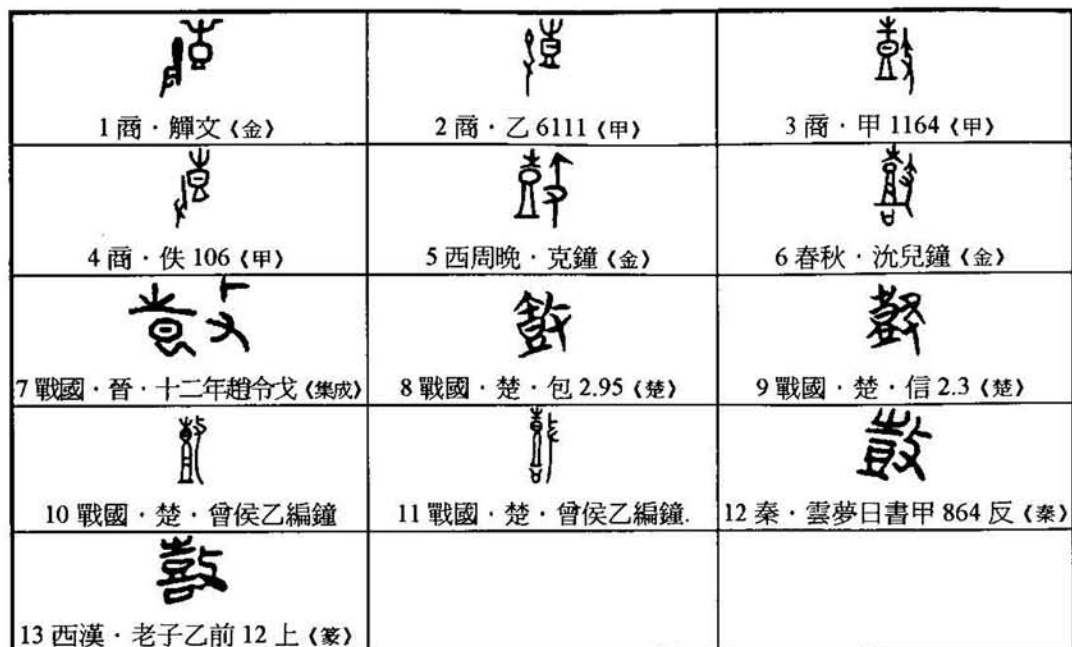 1 商·觶文《金》
2 商·乙 6111《甲》
3 商·甲 1164《甲》
4 商·佚 106《甲》
5 西周晚·克鐘《金》
6 春秋·沇兒鐘《金》
7 戰國·晉·十二年趙令戈《集成》
8 戰國·楚·包 2.95《楚》
9 戰國·楚·信 2.3《楚》
10 戰國·楚·曾侯乙編鐘
11 戰國·楚·曾侯乙編鐘.
12 秦·雲夢日書甲 864 反《秦》
13 西漢·老子乙前 12 上《篆》